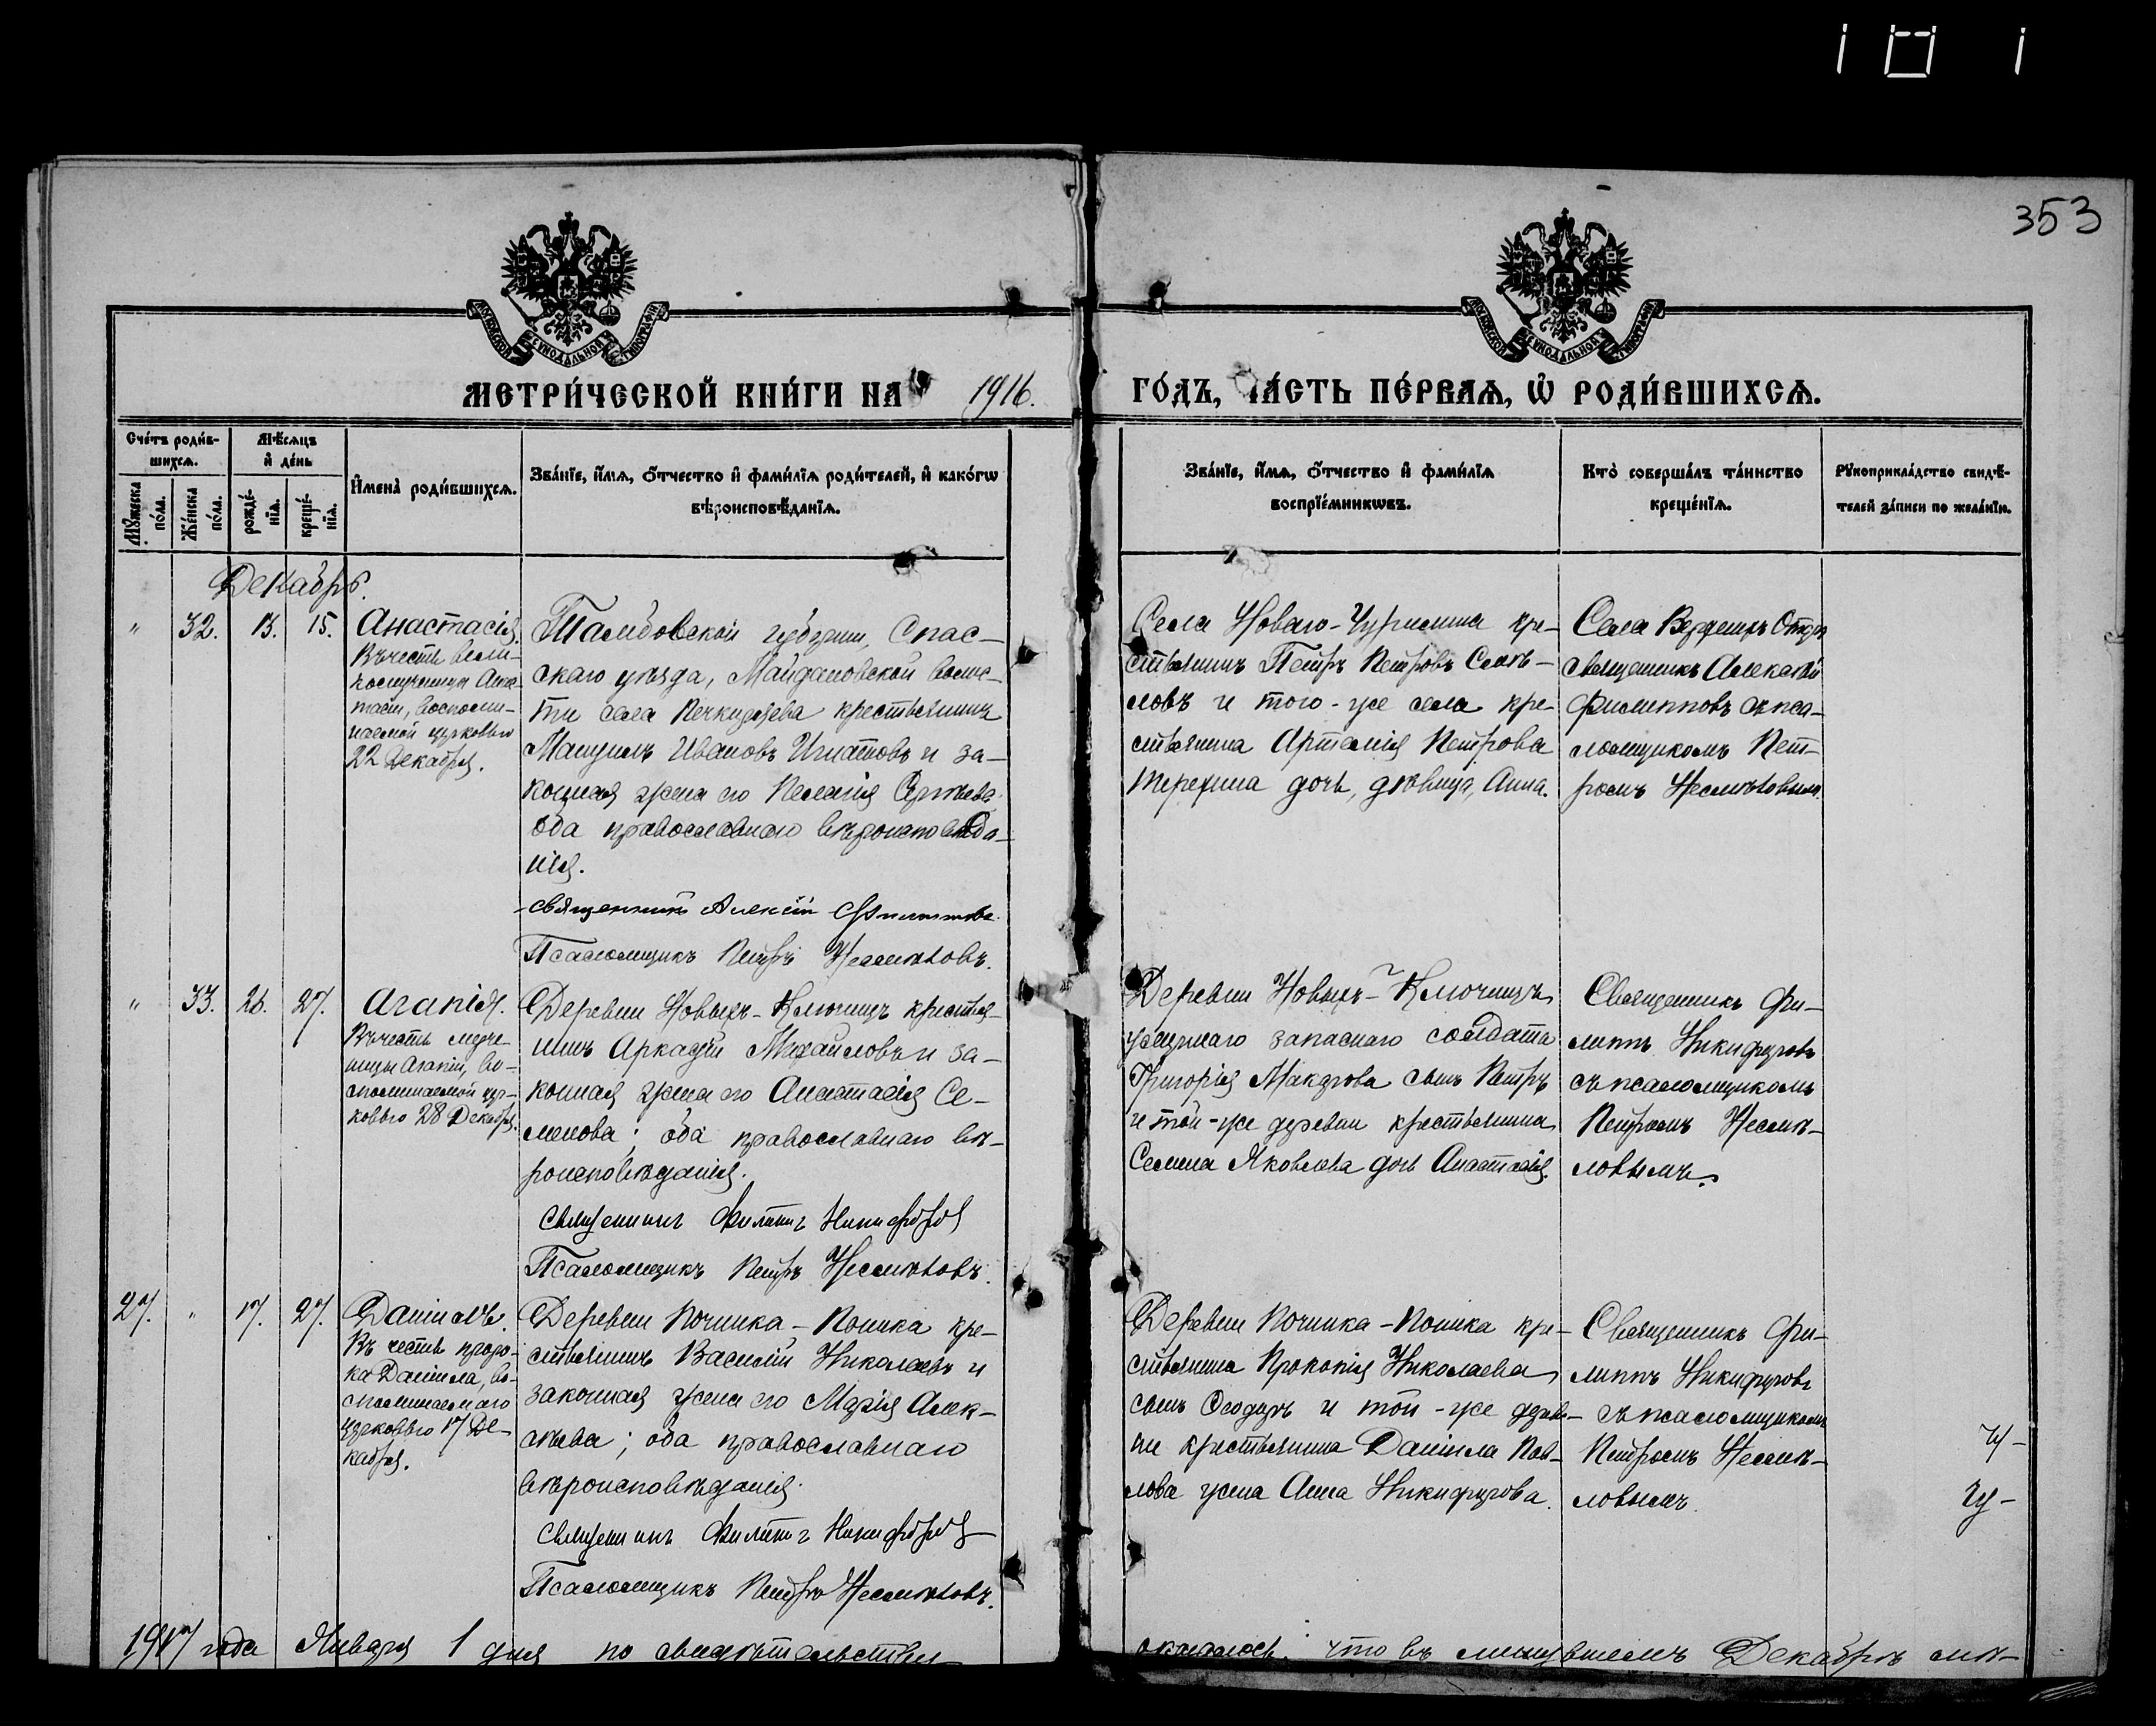 353
МЕТРИ́ЧЕСКОЙ КНИ́ГИ НА 1916. ГО́ДЪ, ЧА́СТЬ ПЕ́РВАѦ, Ѡ РОДИ́ВШИХСѦ.
Сче́тъ роди́в-
шихсѧ.
Мꙋ́жеска
по́ла.
Же́нска
по́ла.
Мѣ́сѧцъ
и҆ де́нь
рожде́-
нїѧ.
креще́-
нїѧ.
И҆мена̀ роди́вшихсѧ.
Зва́нїе, и҆́мѧ, ѻ҆́тчество и҆ фами́лїѧ роди́телей, и҆ како́гѡ
вѣроисповѣ́данїѧ.
Зва́нїе, и҆́мѧ, ѻ҆́тчество и҆ фами́лїѧ
воспрїе́мникѡвъ.
Кто̀ соверша́лъ та́инство
креще́нїѧ.
Рꙋкоприкла́дство свидѣ́-
телей за́писи по жела́нїю.
Декабрь.
" 32. 13. 15. Анастасія.
Въ честь вели-
комученицы Анас-
тасіи, воспоми-
наемой церковью
22 Декабря.
Тамбовской губерніи, Спас-
скаго уѣзда, Майдановской волос-
ти села крестьянинъ
Ивановъ Игнатовъ и за-
конная жена его Пелагія Сергѣева
оба православнаго вѣроисповѣда-
нія.
священникъ Алексій Филипповъ
Псаломщикъ Петръ Несмѣловъ.
Села Новаго-Чурилина кре-
стьянинъ Петръ Петровъ
и того-же села кре-
стьянина Артемія Петрова
Терехина дочь, дѣвица, Анна.
Села
священникъ Алексѣй
Филипповъ съ пса-
ломщикомъ Пет-
ромъ Несмѣловымъ.
" 33. 26. 27. Агапія.
Въ честь муче-
ницы Агапіи, во-
споминаемой цер-
ковью 28 Декабря.
Деревни Новыхъ-Ключищъ крестья-
нинъ Аркадій Михайловъ и за-
конная жена его Анастасія Се-
менова; оба православнаго вѣ-
роисповѣданія.
Священникъ Филиппъ Никифоровъ
Псаломщикъ Петръ Несмѣловъ.
Деревни Новыхъ-Ключищъ
запаснаго солдата
Григорія Макарова сынъ Петръ
и той-же деревни крестьянина
Семина Яковлева дочь Анастасія.
Священникъ Фи-
липпъ Никифоровъ
съ псаломщикомъ
Петромъ Несмѣ-
ловымъ.
27. " 17. 27. Даніилъ.
Въ честь проро-
ка Даніила, во-
споминаемаго
церковью 17 Де-
кабря.
Деревни Починка-Поника кре-
стьянинъ Василій Николаевъ и
законная жена его Марія Алек-
сѣева; оба православнаго
вѣроисповѣданія.
Священникъ Филиппъ Никифоровъ
Псаломщикъ Петръ Несмѣловъ.
Деревни Починка-Поника кре-
стьянина Прокопія Николаева
сынъ Ѳеодоръ и той-же дерев-
ни крестьянина Даніила Пав-
лова жена Анна Никифорова.
Священникъ Фи-
липпъ Никифоровъ
съ псаломщикомъ
Петромъ Несмѣ-
ловымъ.
1917 года Января 1 дня по свидѣтельствѣ
оказалось: что въ минувшемъ Декабрѣ мѣ-